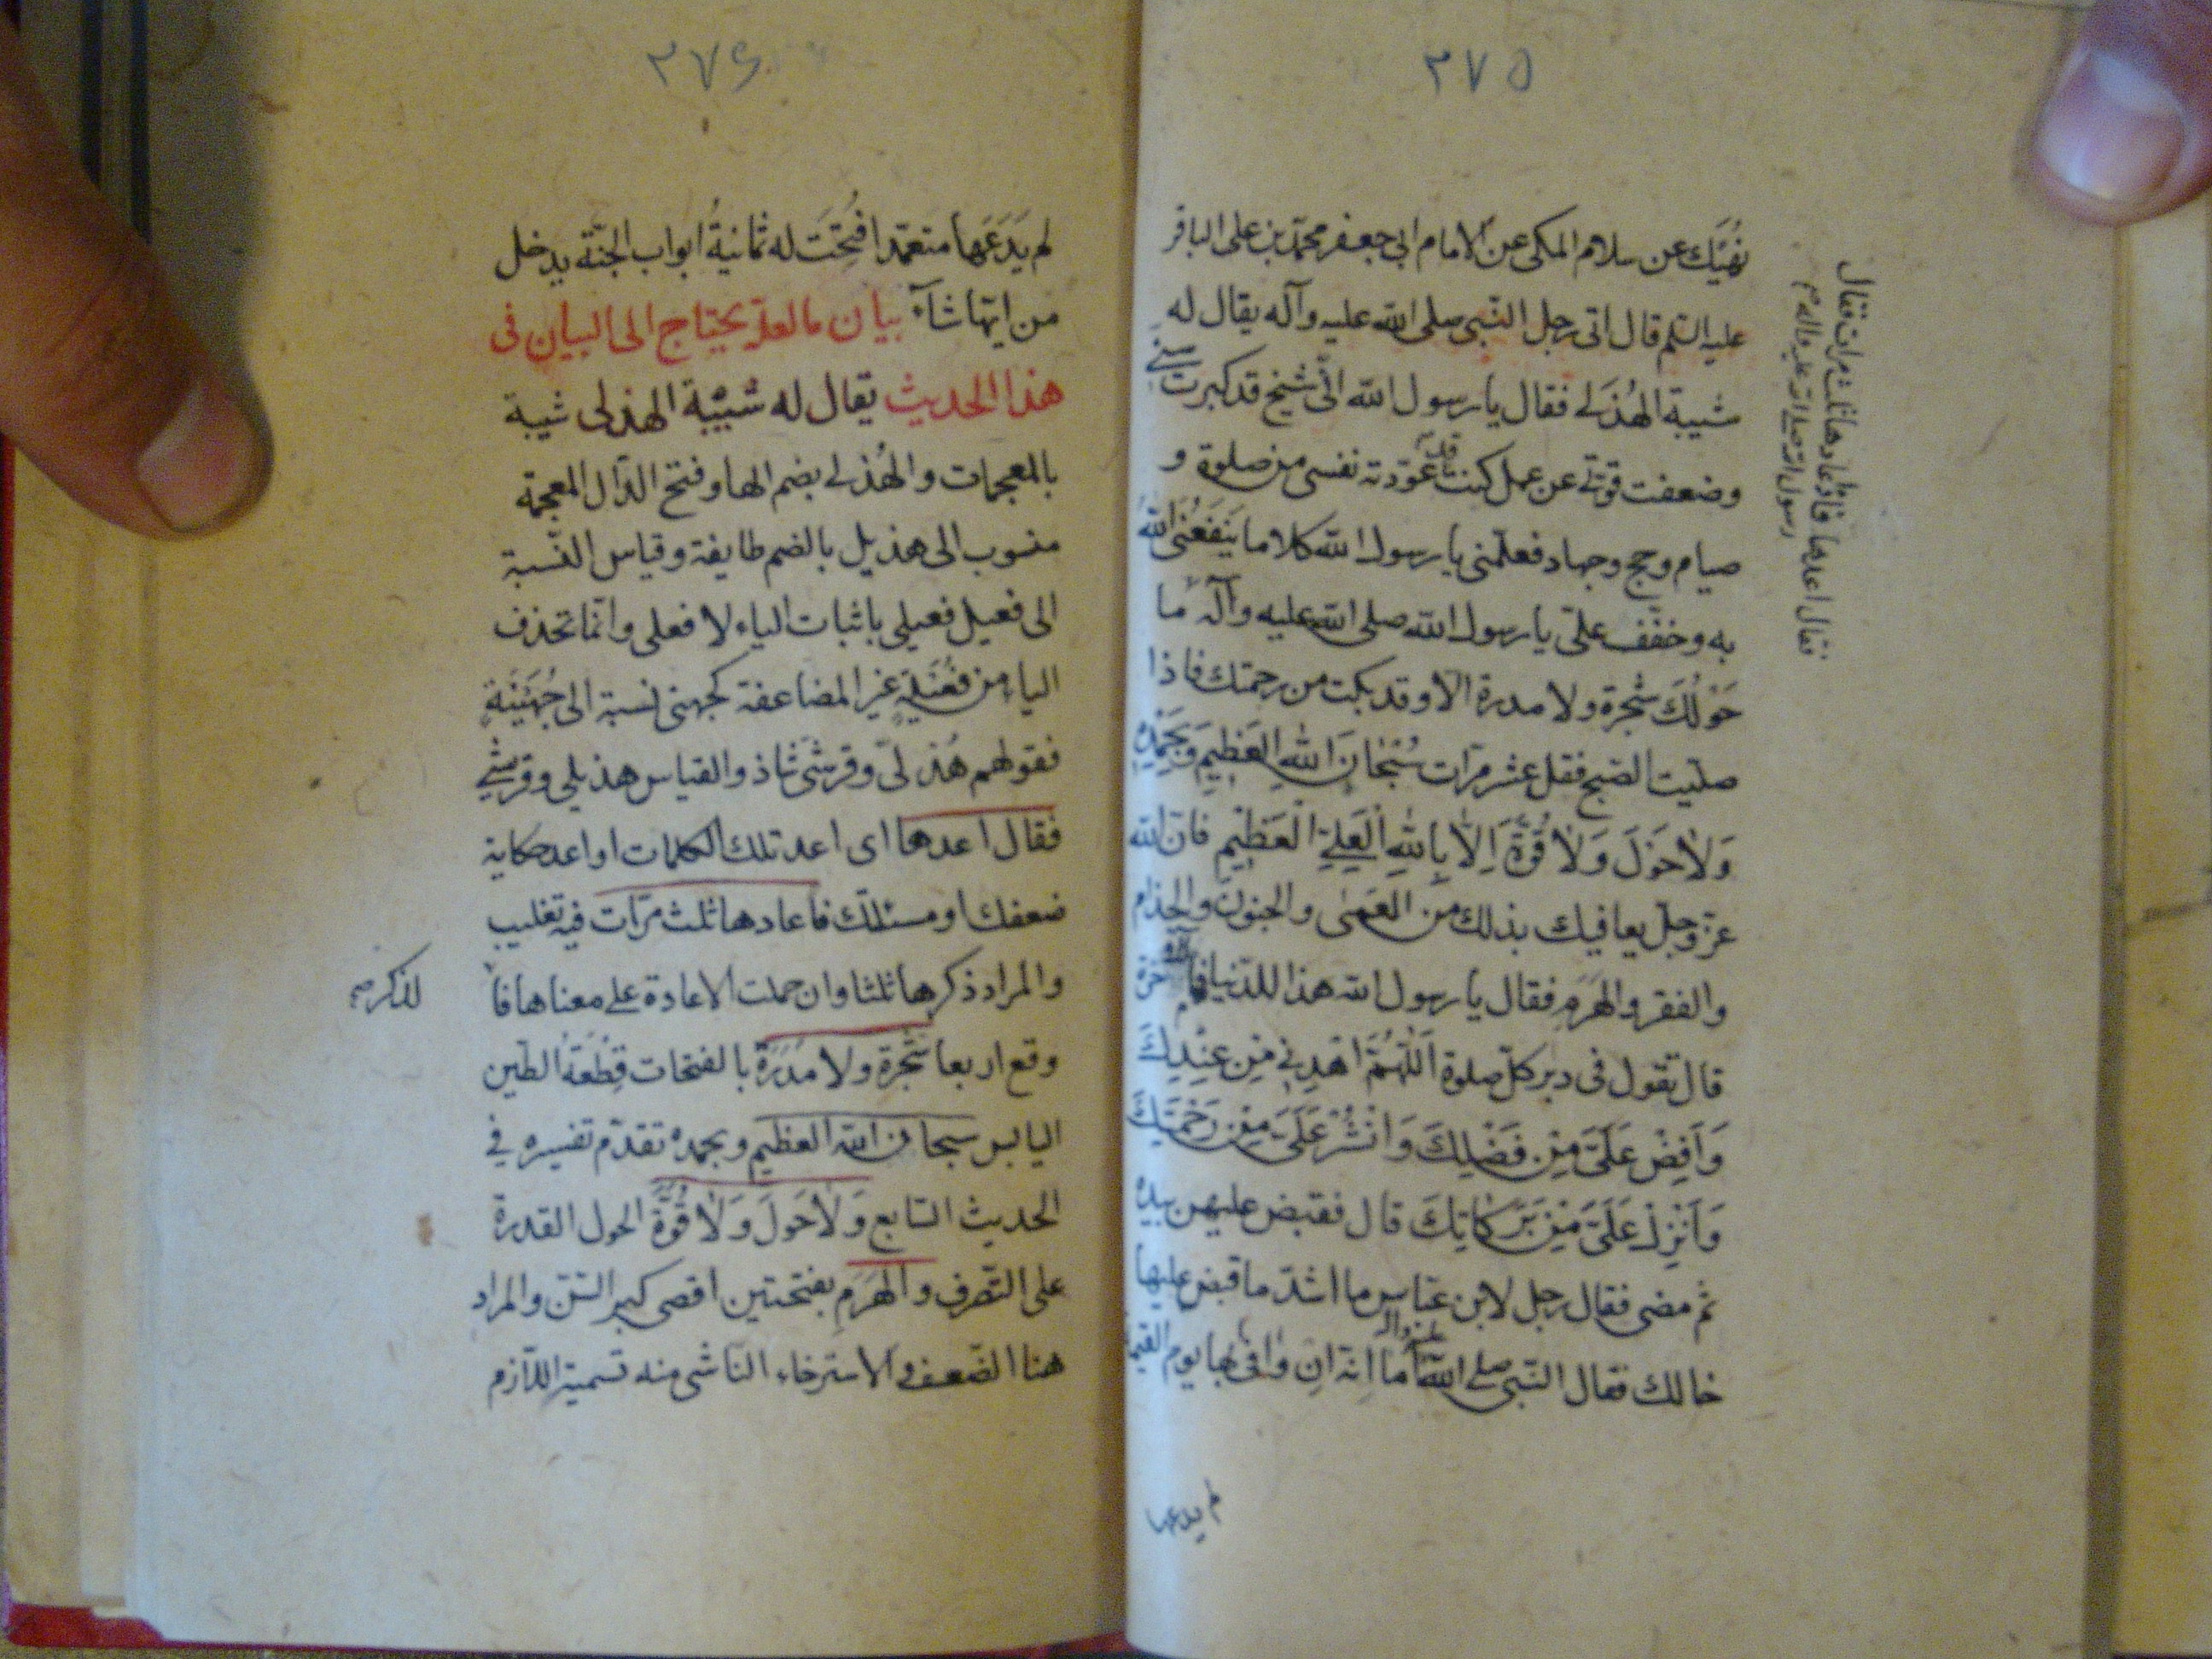 ٢٧٥
نُهَيْك عن سلام المكى عن الامام ابى جعفر محمد بن على الباقر
عليه السلم قال اتى رجل النبى صلى الله عليه وآله يقال له
شيبة الهُذَلى فقال يا رسول الله انى شيخ قد كبرت سنى
وضعفت قوتى عن عمل كنت قد عوّدته نفسى من صلوة و
صيام وحج وجهاد فعلّمنى يا رسول الله كلاما يَنْفَعُنى الله
به وخفّف علىّ يا رسول الله صلى الله عليه وآله ما
حَوْلَكَ شجرة ولا مدرة الا وقد بكت من رحمتك فاذا
صلّيت الصبح فقل عشر مرّات سُبْحَانَ اللهِ العَظِيمِ وَبِحَمْدِهِ
وَلَا حَوْلَ وَلَا قُوَّةَ اِلَّا بِاللهِ الْعَلِىِّ الْعَظِيمِ فان الله
عز وجل يعافيك بذلك من العَمى والجنون والجذام
والفقر والهَرَم فقال يا رسول الله هذا للدنيا فما للآخرة
قال تقول فى دبر كلّ صلوة اَللّهُمَّ اهْدِنِى مِنْ عِنْدِكَ
وَاَفِضْ عَلَىَّ مِنْ فَضْلِكَ وَانْشُرْ عَلَىَّ مِنْ رَحْمَتِكَ
وَاَنْزِلْ عَلَىَّ مِنْ بَرَكَاتِكَ قال فقبض عليهن بيده
ثم مضى فقال رجل لابن عباس ما اشدّ ما قبض عليها
خالك فقال النبى صلى الله عليه وآله اما انه ان وافى بها يوم القيمة
لم يدعها
فقال اعدها فاعادها ثلث مرات فقال
رسول الله صلى الله عليه وآله
٢٧۶
لم يَدَعْها متعمّدا فُتِحَتْ له ثمانيةُ ابواب الجنّة يدخل
من ايّها شآء بيان ما لعله يحتاج الى البيان فى
هذا الحديث يقال له شيبة الهذلى شيبة
بالمعجمات والهُذلى بضم الها وفتح الذال المعجمة
منسوب الى هذيل بالضم طايفة وقياس النسبة
الى فعيل فعيلى باثبات الياء لا فعلى وانّما تحذف
الياء من فُعَيْلَة غير المضاعفة كجهنى نسبة الى جُهَيْنَة
فقولهم هُذلىّ وقرشىّ شاذ والقياس هذيلى وقريشى
فقال اعدها اى اعد تلك الكلمات او اعد حكاية
ضعفك ومسئلتك فاعادها ثلث مرّات فيه تغليب
والمراد ذكرها ثلثا وان حملت الاعادة على معناها فا
لذكر صح
وقع اربعا شَجَرة ولا مَدَرَة بالفتحات قِطْعَةُ الطّين
اليابس سبحان الله العظيم وبحمده تقدّم تفسيره فى
الحديث السّابع وَلَا حَوْلَ وَلَا قُوَّةَ الحول القدرة
على التّصرف والهَرَمِ بفتحتين اقصى كبر السّنّ والمراد
هنا الضّعف والاسترخاء الناشى منه تسمية اللازم